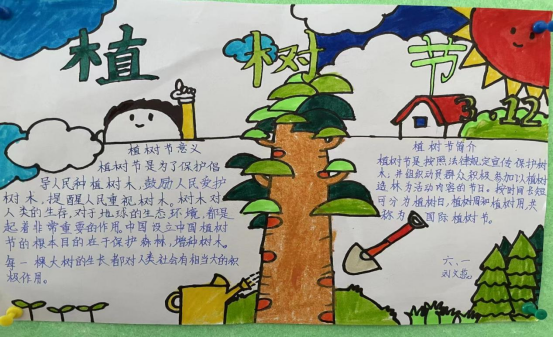 植树节
3.12
植树节意义
植树节是为了保护倡
导人民种植树木,鼓励人民爱护
树木,提醒人民重视树木。树木对
人类的生存,对于地球的生态环境,都是
起着非常重要的作用。中国设立中国植树
节的根本目的在于保护森林,增种树木。
每一棵大树的生长都对人类社会有相当大的积
极作用。
植树节简介
植树节是按照法律规定宣传保护树
木,并组织动员群众积极参加以植树
造林为活动内容的节日。按时间长短
可分为植树日,植树周和植树月,共
称为国际植树节。
六、一